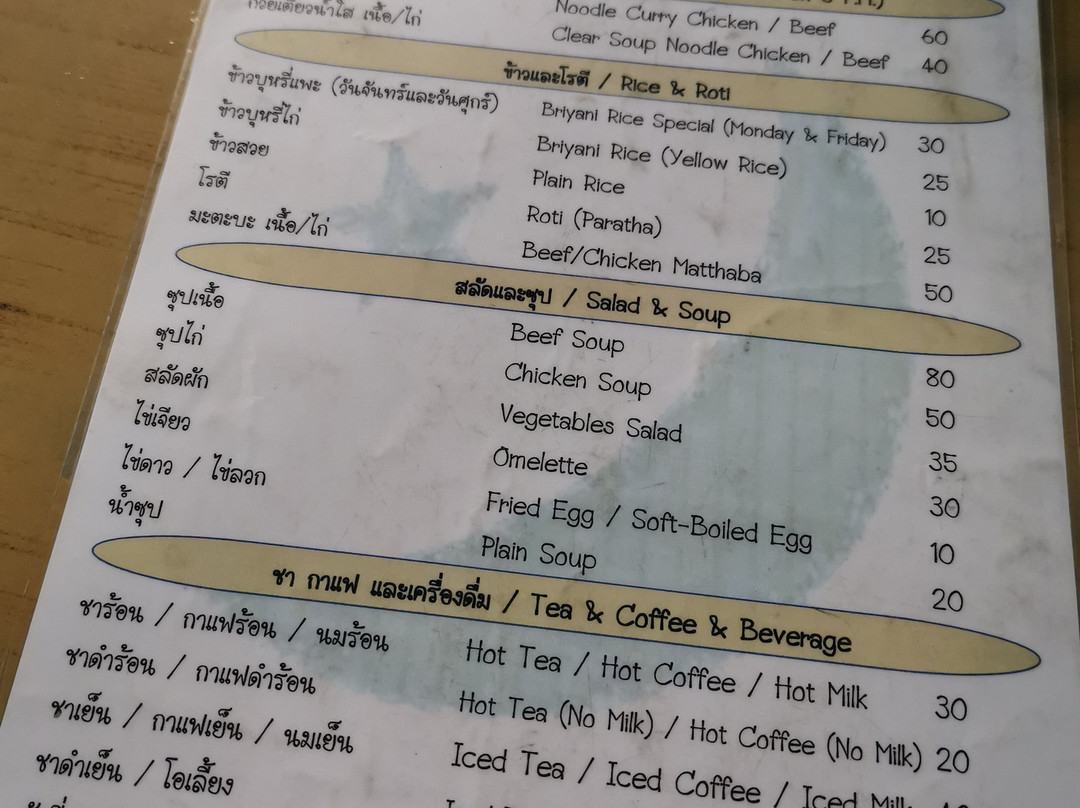 ก๋วยเตี๋ยวน้ำใส เนื้อ/ไก่ Noodle Curry Chicken / Beef 60
Clear Soup Noodle Chicken / Beef 40
ข้าวและโรตี / Rice & Roti
ข้าวบุหรี่แพะ (วันจันทร์และวันศุกร์) Briyani Rice Special (Monday & Friday) 30
ข้าวบุหรี่ไก่ Briyani Rice (Yellow Rice) 25
ข้าวสวย Plain Rice 10
โรตี Roti (Paratha) 25
มะตะบะ เนื้อ/ไก่ Beef/Chicken Matthaba 50
สลัดและซุป / Salad & Soup
ซุปเนื้อ Beef Soup 80
ซุปไก่ Chicken Soup 50
สลัดผัก Vegetables Salad 35
ไข่เจียว Omelette 30
ไข่ดาว / ไข่ลวก Fried Egg / Soft-Boiled Egg 10
น้ำซุป Plain Soup 20
ชา กาแฟ และเครื่องดื่ม / Tea & Coffee & Beverage
ชาร้อน / กาแฟร้อน / นมร้อน Hot Tea / Hot Coffee / Hot Milk 30
ชาดำร้อน / กาแฟดำร้อน Hot Tea (No Milk) / Hot Coffee (No Milk) 20
ชาเย็น / กาแฟเย็น / นมเย็น Iced Tea / Iced Coffee / Iced Milk
ชาดำเย็น / โอเลี้ยง